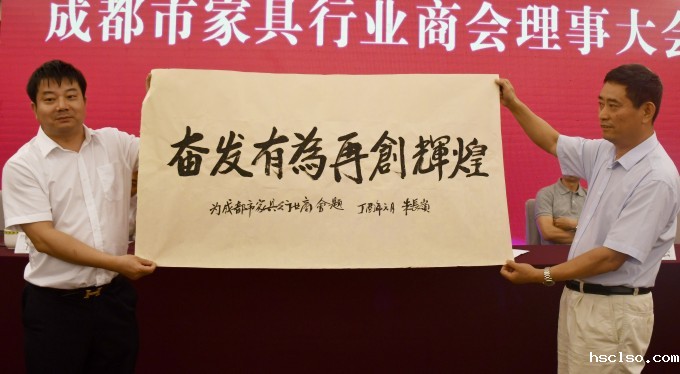 成都市家具行业商会理事大会
奋发有為再創輝煌
为成都市家具行业商会题 丁酉年六月
hsclso.com